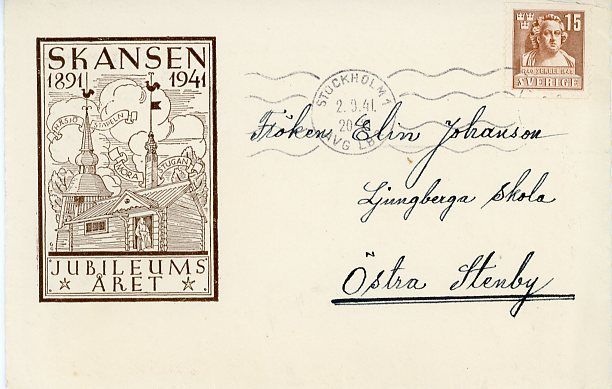 SKANSEN
1891 1941
HÅSJÖ STAPELN
MORA STUGAN
JUBILEUMS
ÅRET
STOCKHOLM 1
2.9.41.
AVG LBR
15
SVERIGE
Fröken Elin Johanson
Ljungberga Skola
Östra Stenby